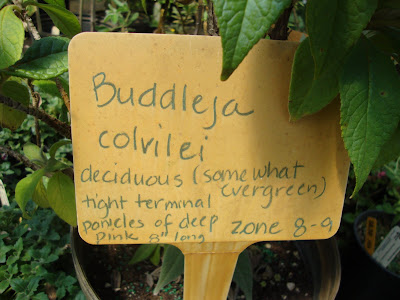 Buddleja
colvilei
deciduous (somewhat
evergreen)
tight terminal
panicles of deep
pink 8" long
zone 8-9